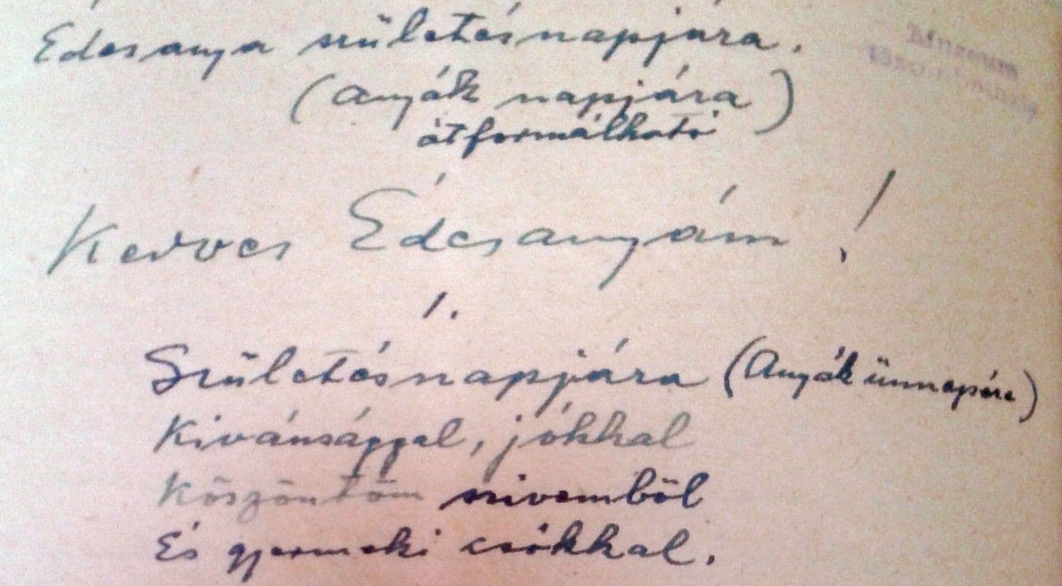 Édesanya születésnapjára.
(Anyák napjára)
átformálható
Kedves Édesanyám!
1.
Születésnapjára (Anyák ünnepére)
Kivánsággal, jókkal
Köszöntöm szivemből
És gyermeki csókkal.
Múzeum